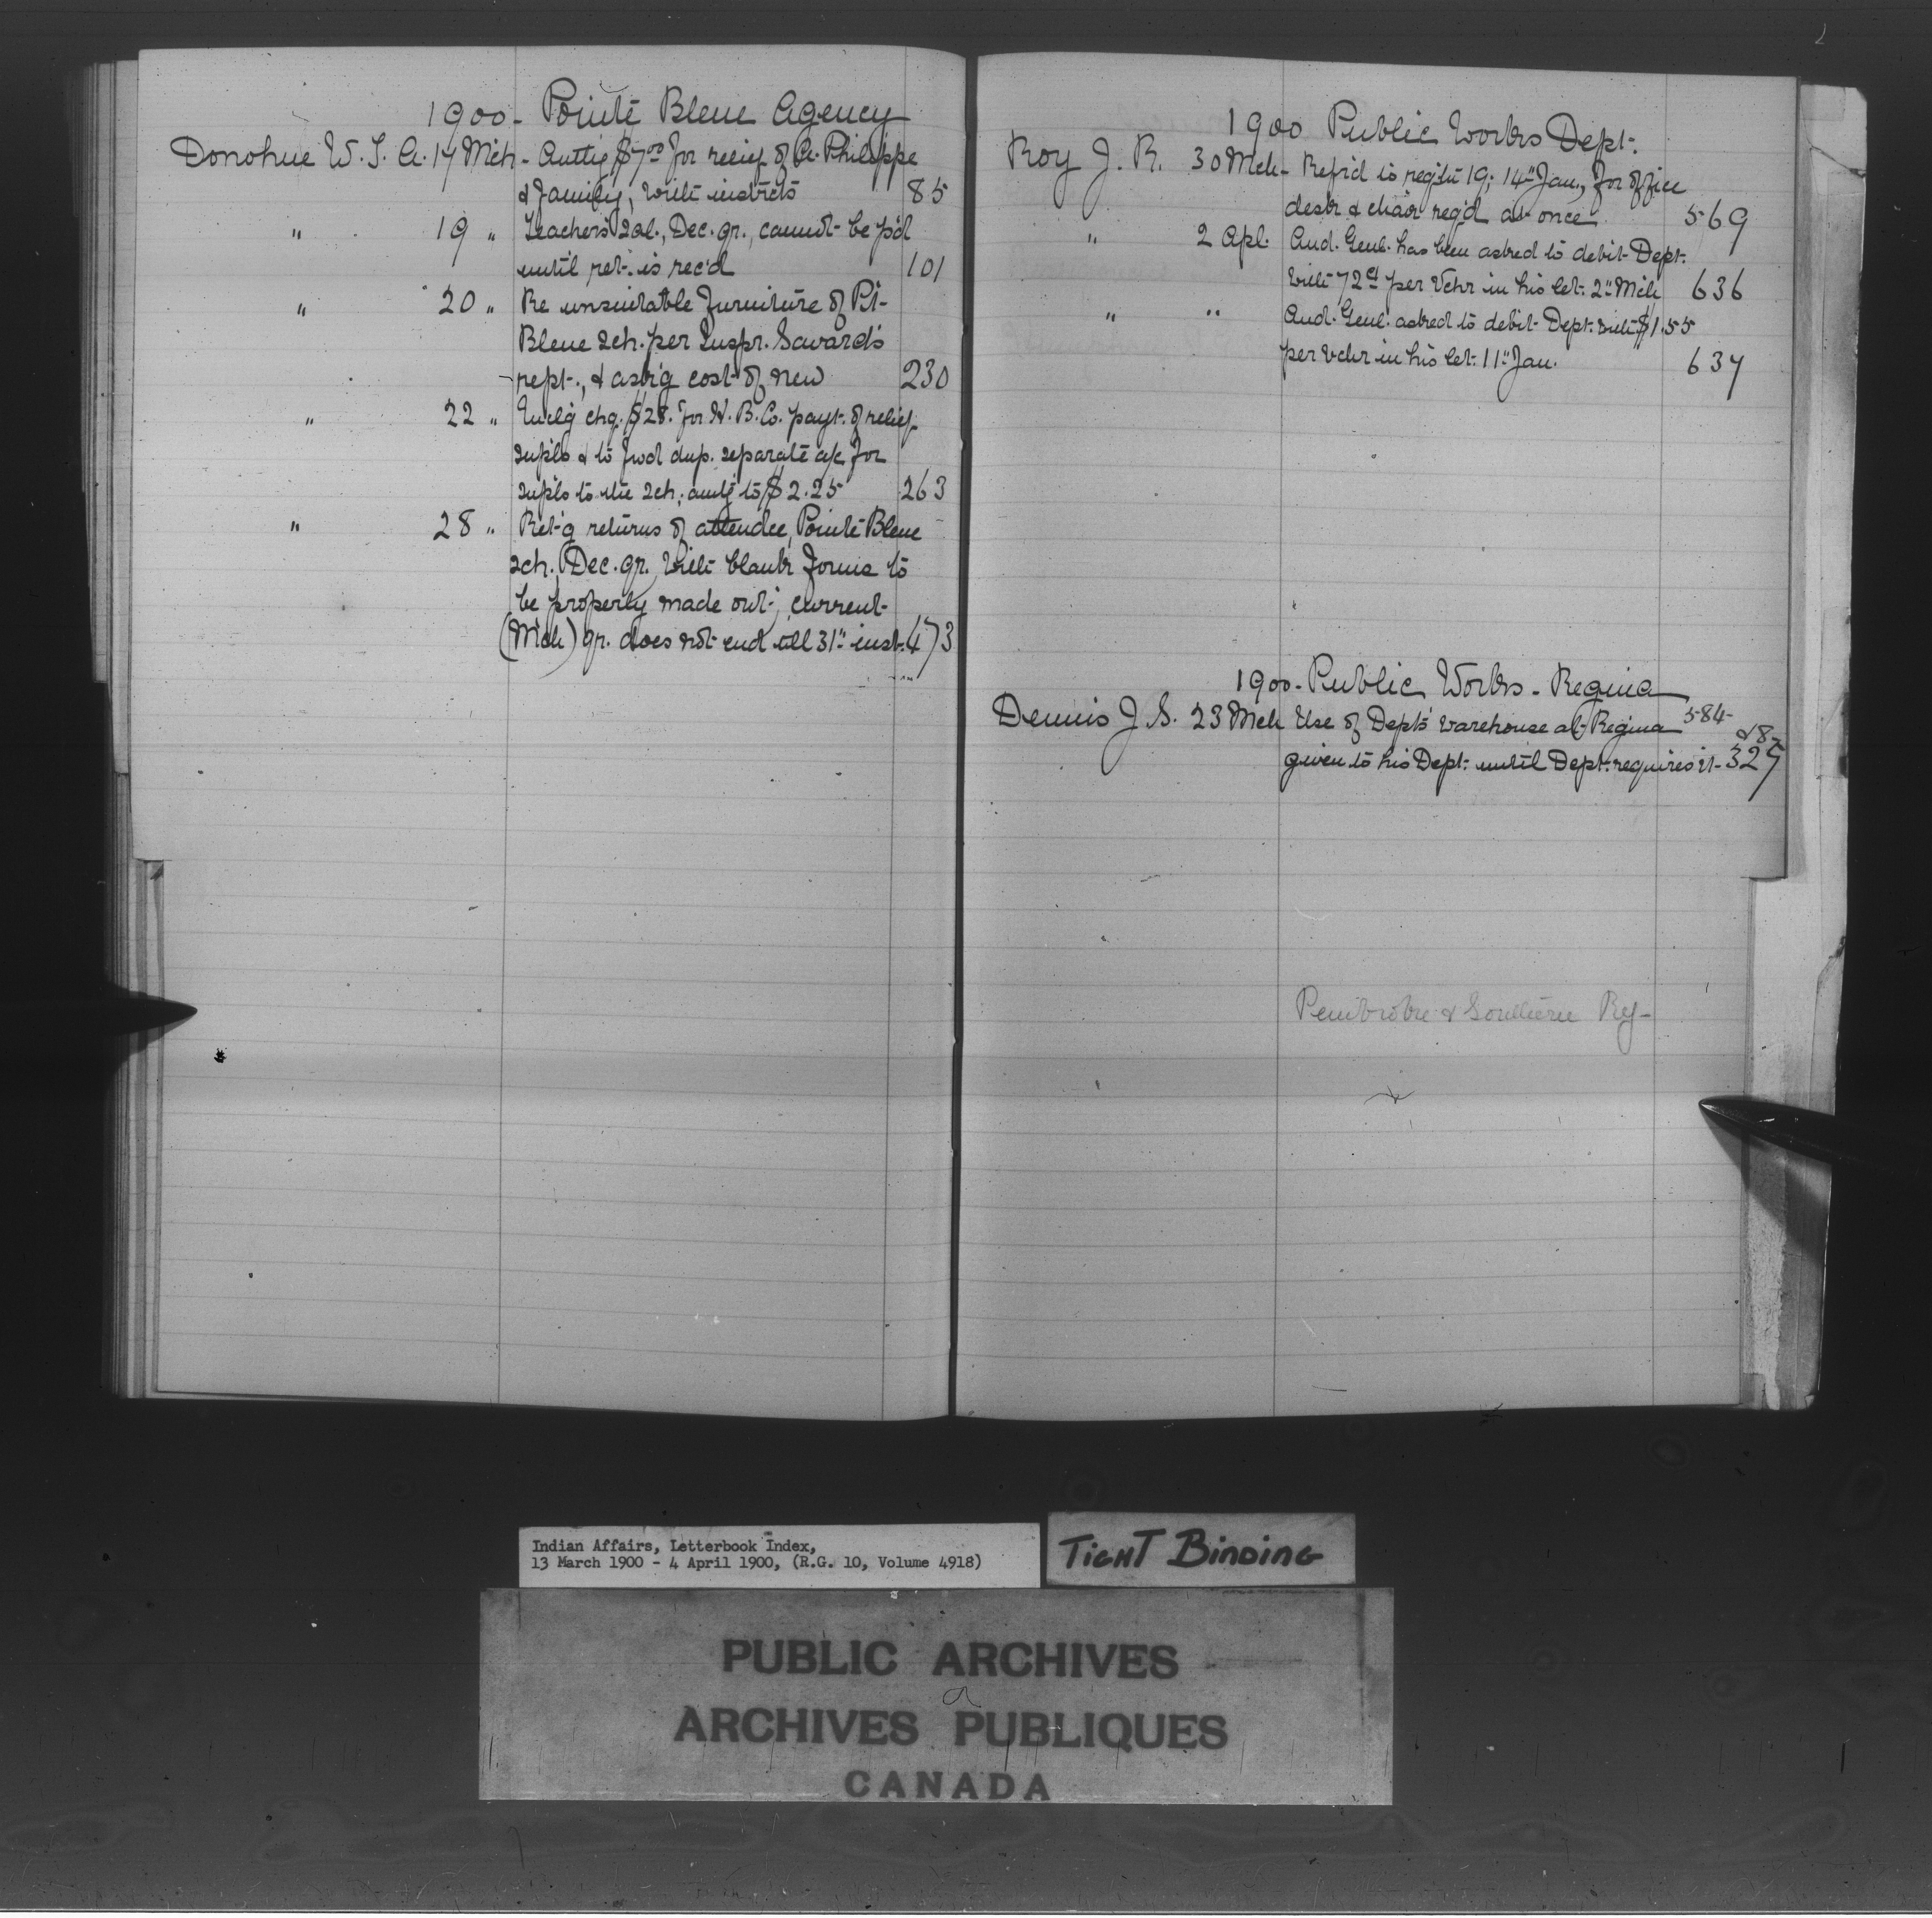 1900 - Pointe Bleue Agency
Donohue W. T. A. 17 Mch - Autt'g $7.00 for relief of A. Philippe
& family, with instrcts 85
" 19 " Teacher's sal., Dec. qr., cannot be p'd
until ret. is rec'd 101
" 20 " Re unsuitable furniture of Pt.
Bleue sch. per Inspr. Savard's
rept., & ask'g cost of new 230
" 22 " Encl'g chq. $28. for H. B. Co. payt. of relief
supls & to fwd dup. separate a/c for
supls to the sch; amtg to $2.25 263
" 28 " Ret'g returns of attendce, Pointe Bleue
sch. Dec. qr. with blank forms to
be properly made out; current
(Mch) qr. does not end till 31" inst. 473
1900 Public Works Dept.
Roy J. R. 30 Mch - Ref'd to reqstn 19; 14" Jan., for office
desk & chair req'd at once 569
" 2 Apl. Aud. Genl. has been asked to debit Dept.
with 72 cts per Vchr in his let. 2" Mch 636
" " Aud. Genl. asked to debit Dept. with $1.55
per vchr in his let. 11" Jan. 637
1900 - Public Works - Regina
Dennis J. S. 23 Mch Use of Dept's warehouse at Regina 584
given to his Dept. until Dept. requires it - 325
Pembroke & Ry-
Indian Affairs, Letterbook Index,
13 March 1900 - 4 April 1900, (R.G. 10, Volume 4918)
TIGHT BINDING
PUBLIC ARCHIVES
ARCHIVES PUBLIQUES
CANADA